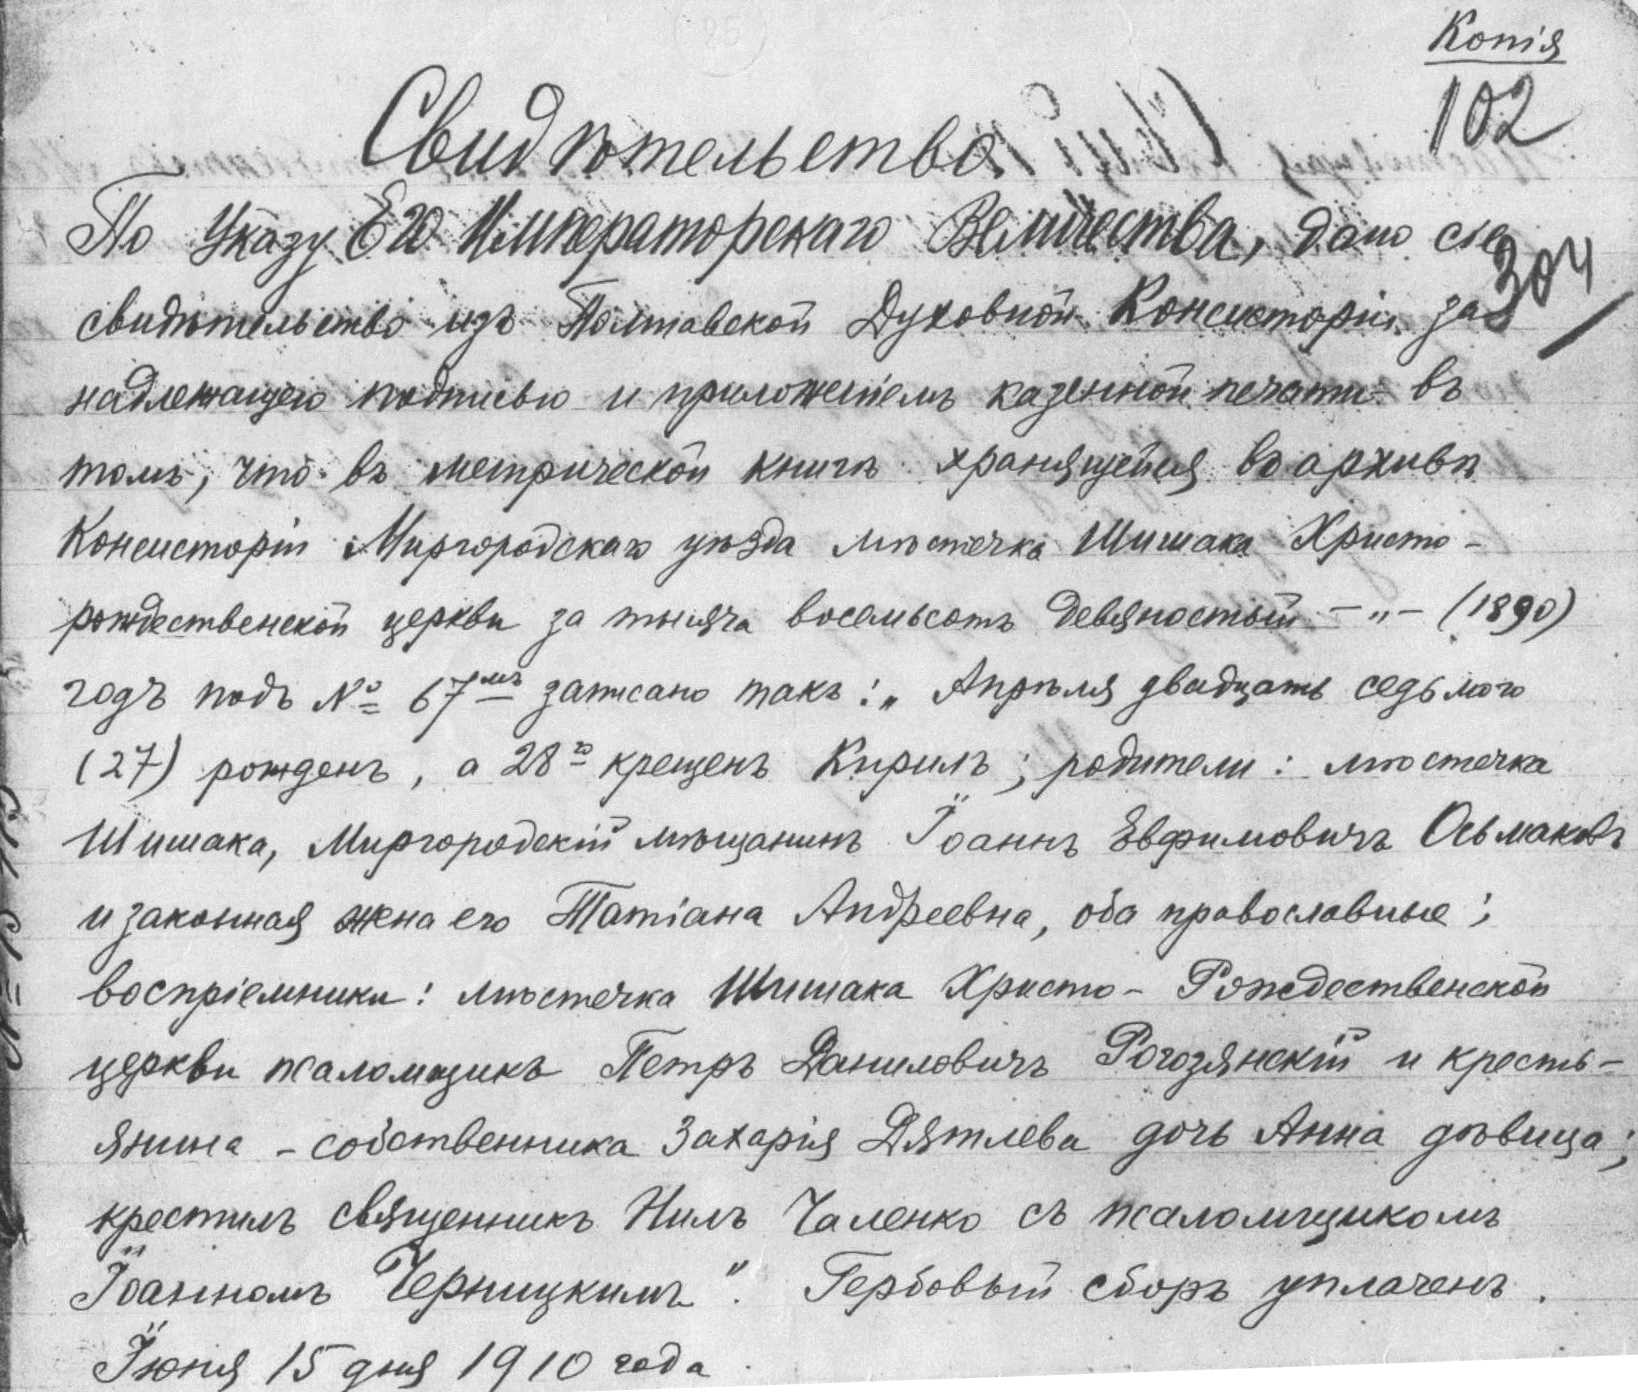 Копія
102
Свидѣтельство.
По Указу Его Императорскаго Величества, дано сіе
304
свидѣтельство изъ Полтавской Духовной Консисторіи за
надлежащею подписью и приложеніемъ казенной печати въ
томъ, что въ метрической книгѣ хранящейся въ архивѣ
Консисторіи Миргородскаго уѣзда мѣстечка Шишака Христо-
рождественской церкви за тысяча восемьсотъ девяностый -„- (1890)
годъ подъ № 67мъ записано такъ: „Апрѣля двадцать седьмого
(27) рожденъ, а 28го крещенъ Кирилъ; родители: мѣстечка
Шишака, Миргородскій мѣщанинъ Іоаннъ Евфимовичъ Осьмаковъ
и законная жена его Татіана Андреевна, оба православные;
воспріемники: мѣстечка Шишака Христо-Рождественской
церкви псаломщикъ Петръ Даниловичъ Рогозянскій и кресть-
янина-собственника Захарія Дятлева дочь Анна дѣвица;
крестилъ священникъ Нилъ Чаленко съ псаломщикомъ
Іоанномъ Черницкимъ". Гербовый сборъ уплаченъ.
Іюня 15 дня 1910 года.